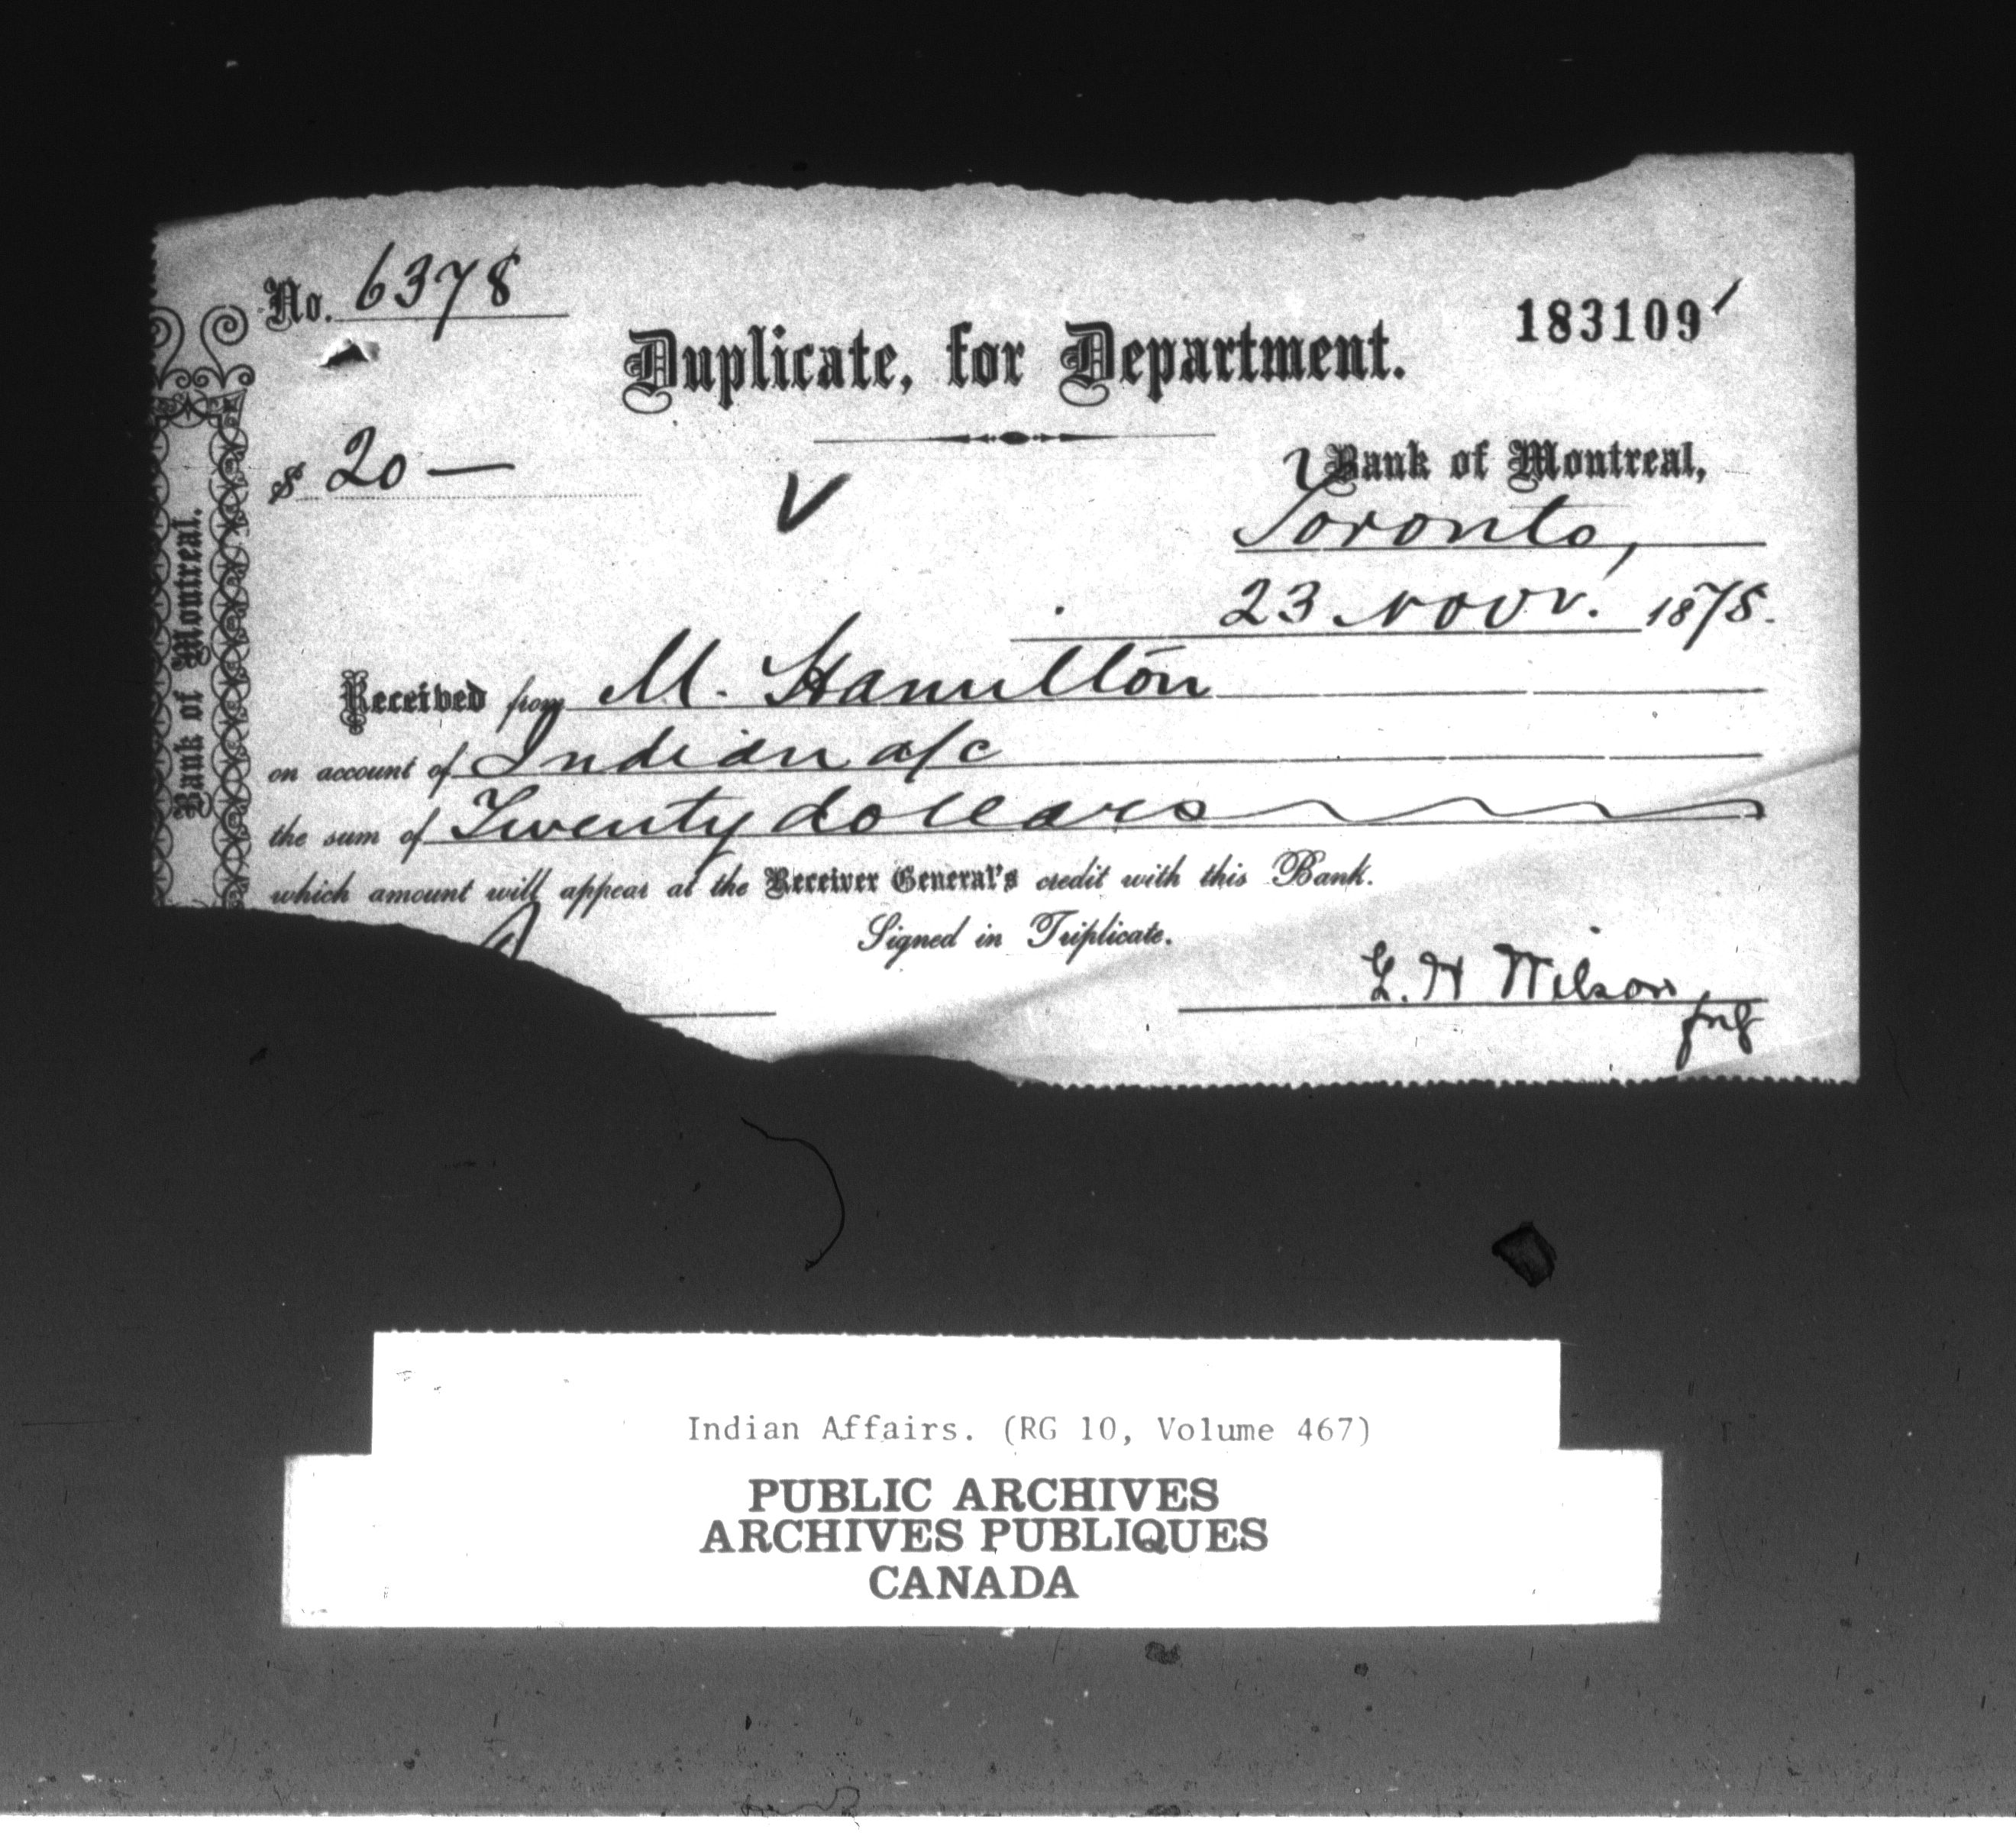 No. 6378
183109
Duplicate, for Department.
$ 20 —
Bank of Montreal,
Toronto,
23 Novr. 1878.
Received from M. Hamilton
on account of Indian a/c
the sum of Twenty dollars
which amount will appear at the Receiver General's credit with this Bank.
Signed in Triplicate.
Wilson
Bank of Montreal.
Indian Affairs. (RG 10, Volume 467)
PUBLIC ARCHIVES
ARCHIVES PUBLIQUES
CANADA